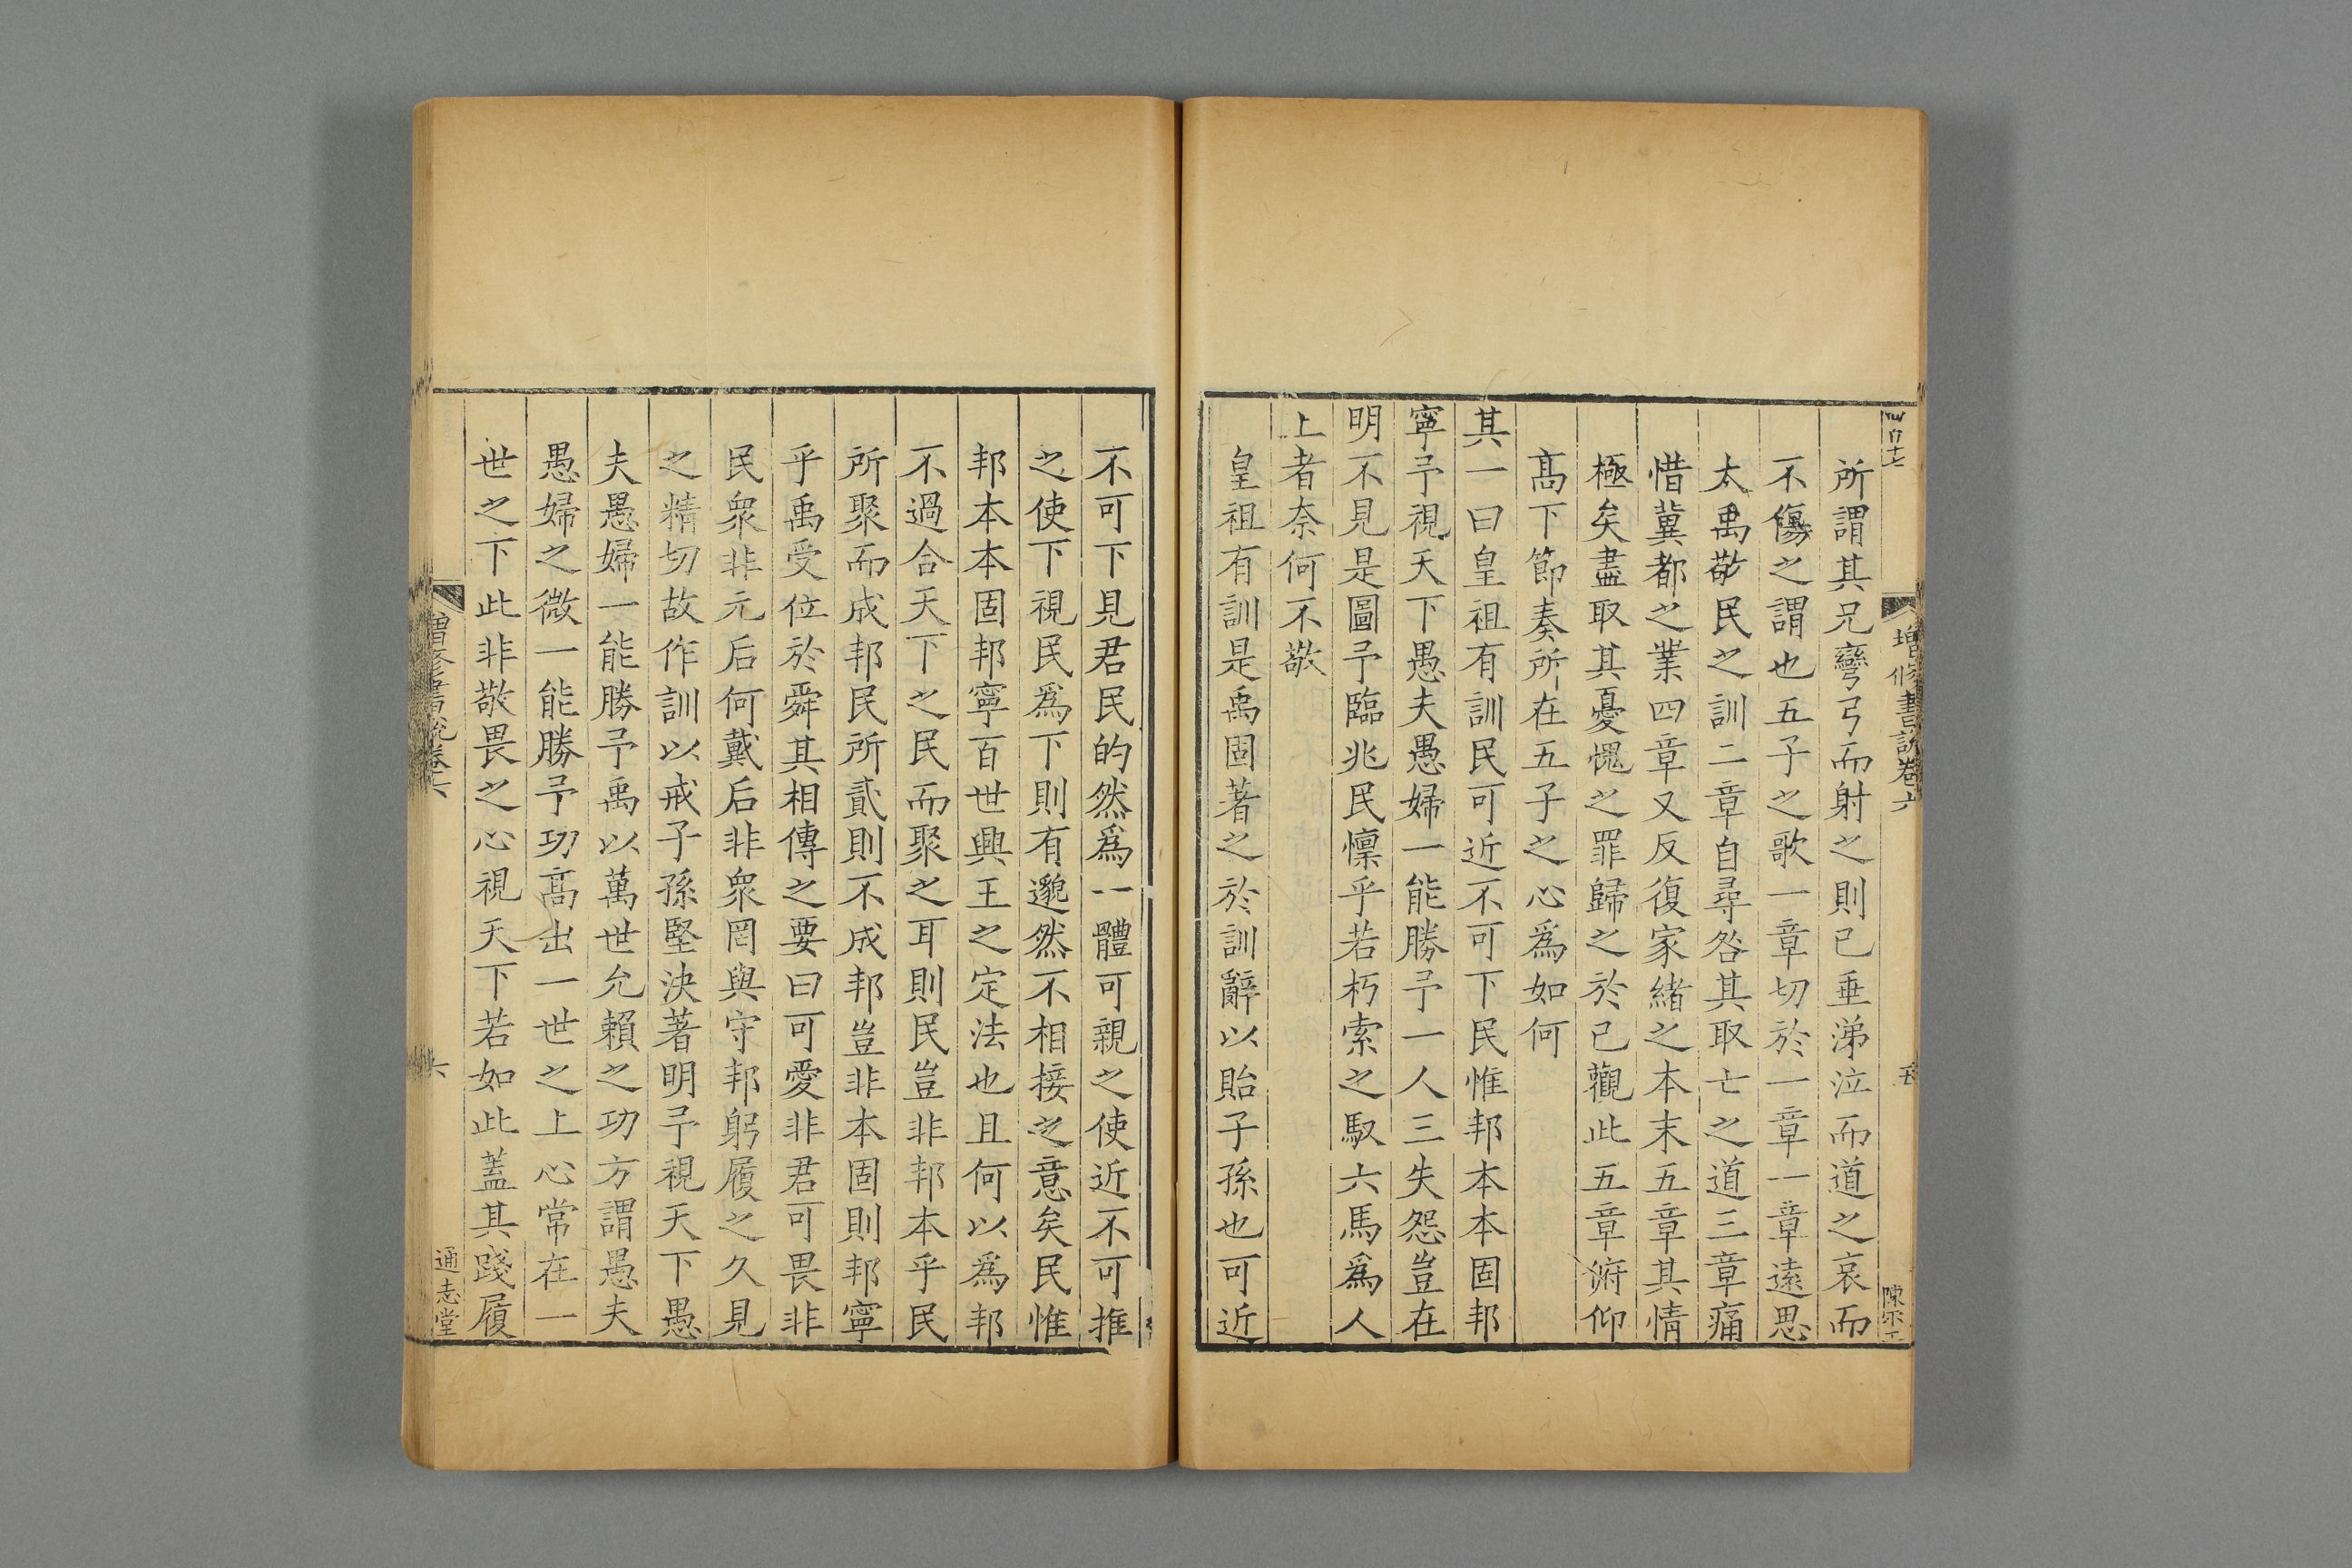 增修書說卷六
所謂其兄彎弓而射之則已垂涕泣而道之哀而
不傷之謂也五子之歌一章切於一章一章遠思
太禹敬民之訓二章自尋咎其取亡之道三章痛
惜冀都之業四章又反復家緒之本末五章其情
極矣盡取其憂愧之罪歸之於己觀此五章俯仰
高下節奏所在五子之心爲如何
其一曰皇祖有訓民可近不可下民惟邦本本固邦
寧予視天下愚夫愚婦一能勝予一人三失怨豈在
明不見是圖予臨兆民懍乎若朽索之馭六馬爲人
上者奈何不敬
皇祖有訓是禹固著之於訓辭以貽子孫也可近
不可下見君民的然爲一體可親之使近不可推
之使下視民爲下則有邈然不相接之意矣民惟
邦本本固邦寧百世興王之定法也且何以爲邦
不過合天下之民而聚之耳則民豈非邦本乎民
所聚而成邦民所貳則不成邦豈非本固則邦寧
乎禹受位於舜其相傳之要曰可愛非君可畏非
民衆非元后何戴后非衆罔與守邦躬履之久見
之精切故作訓以戒子孫堅決著明予視天下愚
夫愚婦一能勝予禹以萬世允賴之功方謂愚夫
愚婦之微一能勝予功髙出一世之上心常在一
世之下此非敬畏之心視天下若如此蓋其踐履
增修書說卷六
六
通志堂